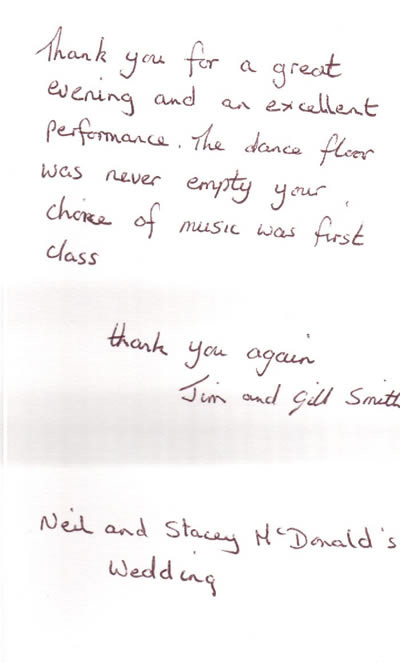 Thank you for a great
evening and an excellent
performance. The dance floor
was never empty your
choice of music was first
class
thank you again
Jim and Gill Smith
Neil and Stacey McDonald's
Wedding